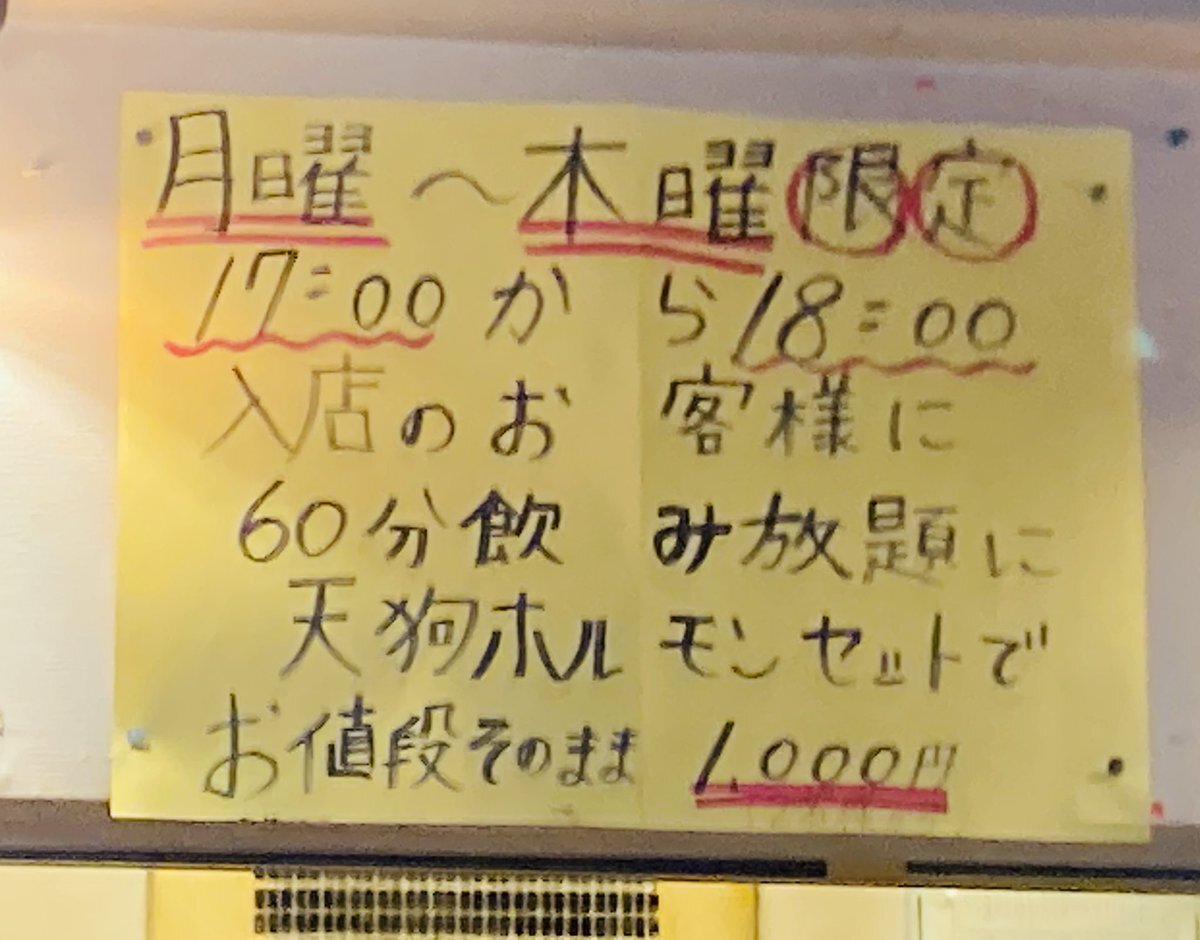 月曜〜木曜限定
17:00から18:00
入店のお客様に
60分飲み放題に
天狗ホルモンセットで
お値段そのまま1,000円